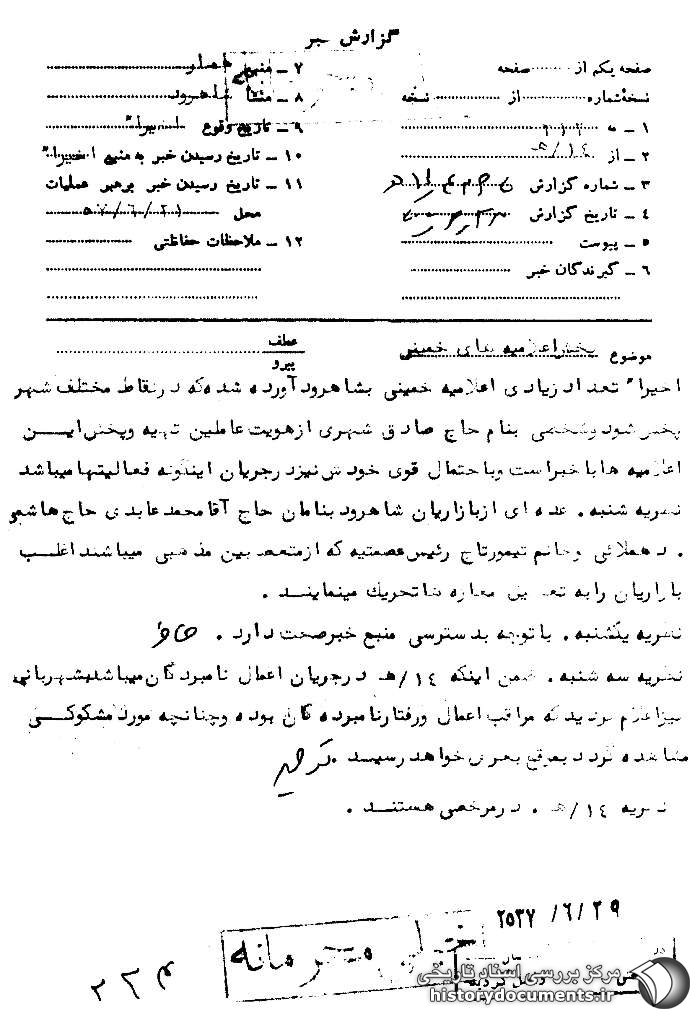 گزارش خبر
صفحه یکم از ........ صفحه
نسخه شماره ........ از ........ نسخه
۱ ـ به
۲ ـ از ۱۴/ه
۳ ـ شماره گزارش
۴ ـ تاریخ گزارش
۵ ـ پیوست
۶ ـ گیرندگان خبر
۷ ـ منبع
۸ ـ منشأ شاهرود
۹ ـ تاریخ وقوع اخیرا"
۱۰ ـ تاریخ رسیدن خبر به منبع اخیرا"
۱۱ ـ تاریخ رسیدن خبر برهبر عملیات
محل ۵۷/۶/۲۱
۱۲ ـ ملاحظات حفاظتی
موضوع پخش اعلامیه های خمینی
عطف
پیرو
اخیرا" تعداد زیادی اعلامیه خمینی بشاهرود آورده شده که در نقاط مختلف شهر
پخش شود و شخصی بنام حاج صادق شهری از هویت عاملین تهیه و پخش ایــن
اعلامیه ها با خبر است و با حتمال قوی خودش نیز در جریان اینگونه فعالیتها میباشد
نظریه شنبه . عده ای از بازاریان شاهرود بنامان حاج آقا محمد عابدی حاج هاشمی
. دهملائی و خانم تیمورتاج رئیس عصمتیه که از متعصبین مذهبی میباشند اغلب
بازاریان را به تعطیل مغازه ها تحریک مینمایند .
نظریه یکشنبه . با توجه بدسترسی منبع خبر صحت دارد .
نظریه سه شنبه . ضمن اینکه ۱۴/ه در جریان اعمال نامبردگان میباشد بشهربانی
نیز اعلام گردید که مراقب اعمال و رفتار نامبرده گان بوده و چنانچه مورد مشکوکــی
مشاهده گردد بموقع بعرض خواهد رسید .
نظریه ۱۴/ه . در مرخصی هستند .
۲۵۳۷/۶/۲۹
خیلی محرمانه
۲۲۴
مرکز بررسی اسناد تاریخی
historydocuments.ir